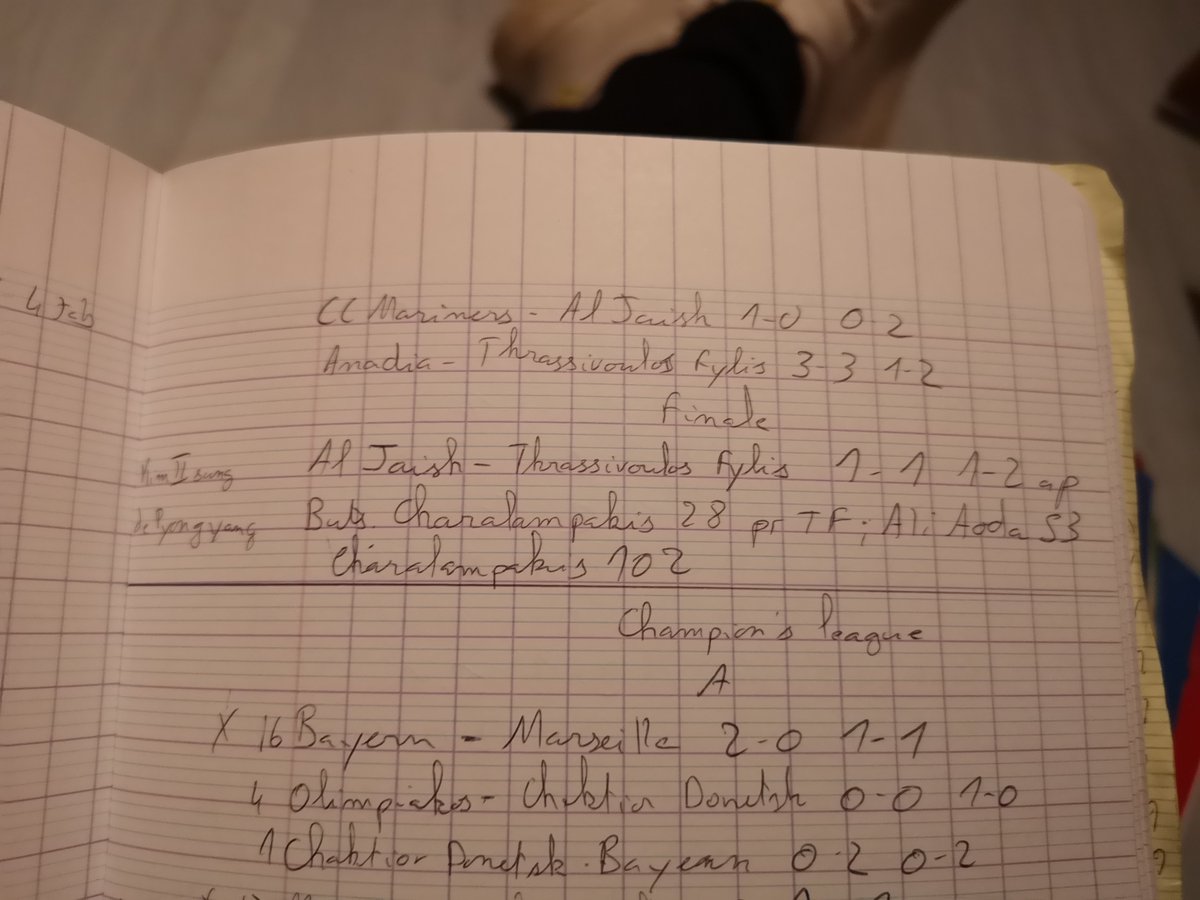 4 Tch
CC Mariners - Al Jaish 1-0 0-2
Anadia - Thrassivoulos Fylis 3-3 1-2
Finale
Kim Il sung
Al Jaish - Thrassivoulos Fylis 1-1 1-2 ap
de Pyongyang
Buts Charalampakis 28 pr TF; Al: Aoda 53
Charalampakis 102
Champion's league
A
X 16 Bayern - Marseille 2-0 1-1
4 Olimpiakos - Chaktior Donetsk 0-0 1-0
1 Chaktior Donetsk - Bayern 0-2 0-2